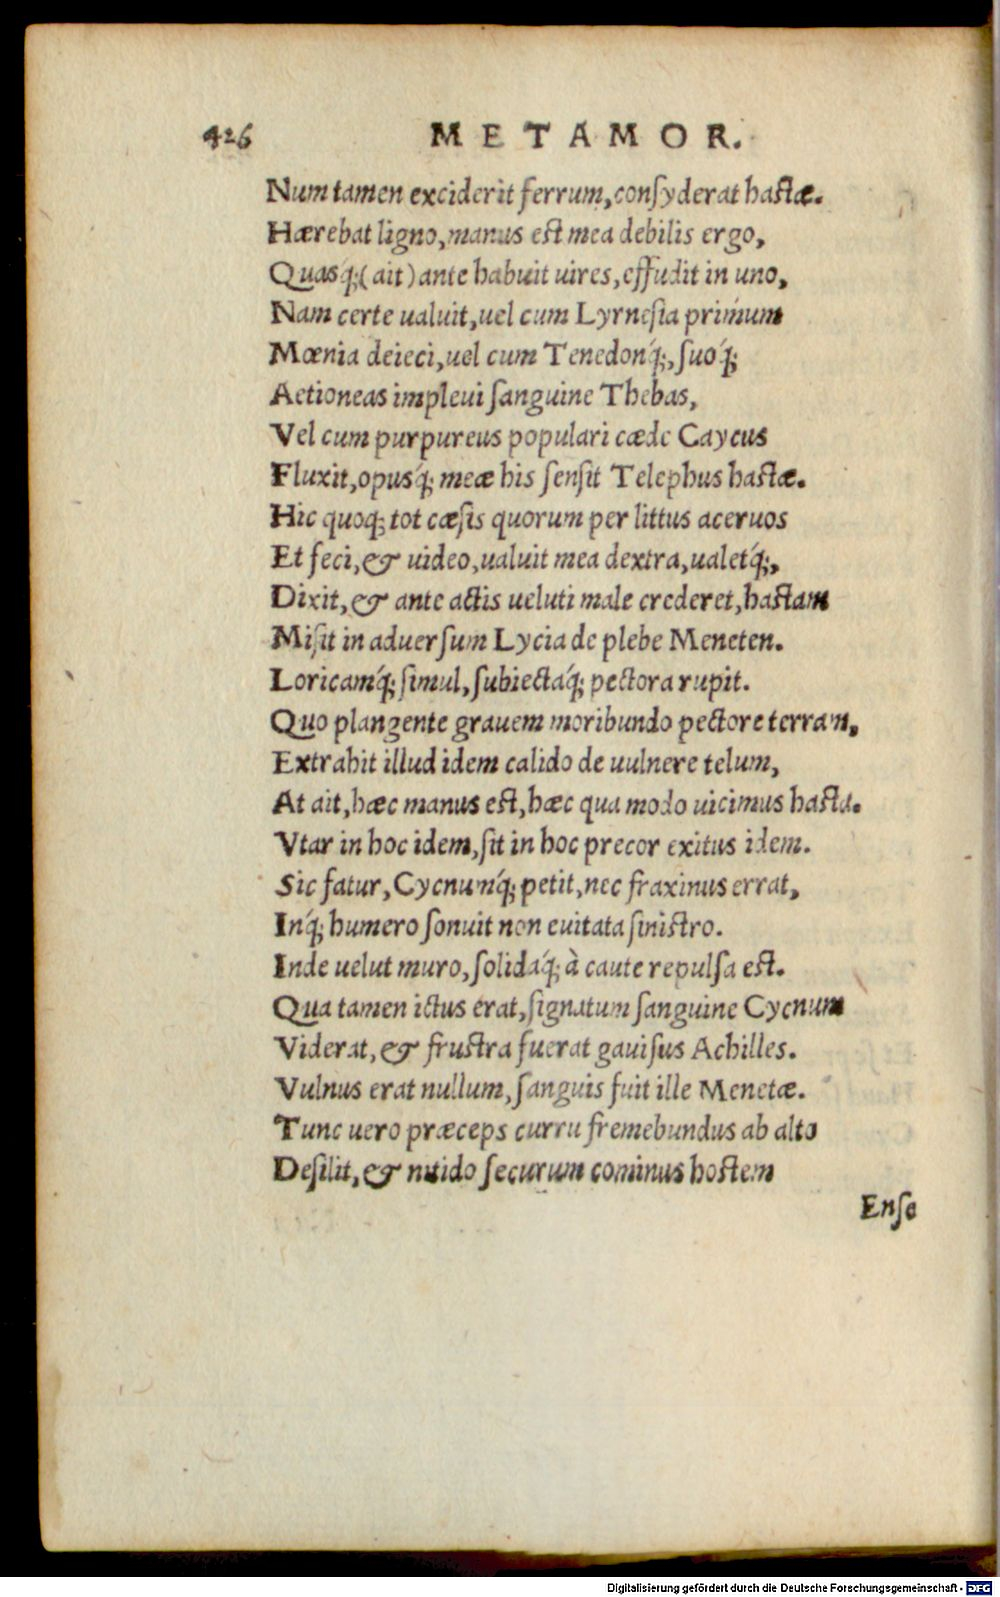 426 METAMOR.
Num tamen exciderit ferrum, conſyderat haſtæ.
Hærebat ligno, manus eſt mea debilis ergo,
Quasq́;(ait) ante habuit uires, effudit in uno,
Nam certe ualuit, uel cum Lyrneſia primum
Mœnia deieci, uel cum Tenedonq́;, ſuoq́;
Aetioneas impleui ſanguine Thebas,
Vel cum purpureus populari cæde Caycus
Fluxit, opusq́; meæ his ſenſit Telephus haſtæ.
Hic quoq; tot cæſis quorum per littus aceruos
Et feci, & uideo, ualuit mea dextra, ualetq́;,
Dixit, & ante actis ueluti male crederet, haſtam
Miſit in aduerſum Lycia de plebe Meneten.
Loricamq́; ſimul, ſubiectaq́; pectora rupit.
Quo plangente grauem moribundo pectore terram,
Extrahit illud idem calido de uulnere telum,
At ait, hæc manus eſt, hæc qua modo uicimus haſta.
Vtar in hoc idem, ſit in hoc precor exitus idem.
Sic fatur, Cycnumq́; petit, nec fraxinus errat,
Inq́; humero ſonuit non euitata ſiniſtro.
Inde uelut muro, ſolidaq́; à caute repulſa eſt.
Qua tamen ictus erat, ſignatum ſanguine Cycnum
Viderat, & fruſtra fuerat gauiſus Achilles.
Vulnus erat nullum, ſanguis fuit ille Menetæ.
Tunc uero præceps curru fremebundus ab alto
Deſilit, & nitido ſecurum cominus hoſtem
Enſe
Digitalisierung gefördert durch die Deutsche Forschungsgemeinschaft - DFG